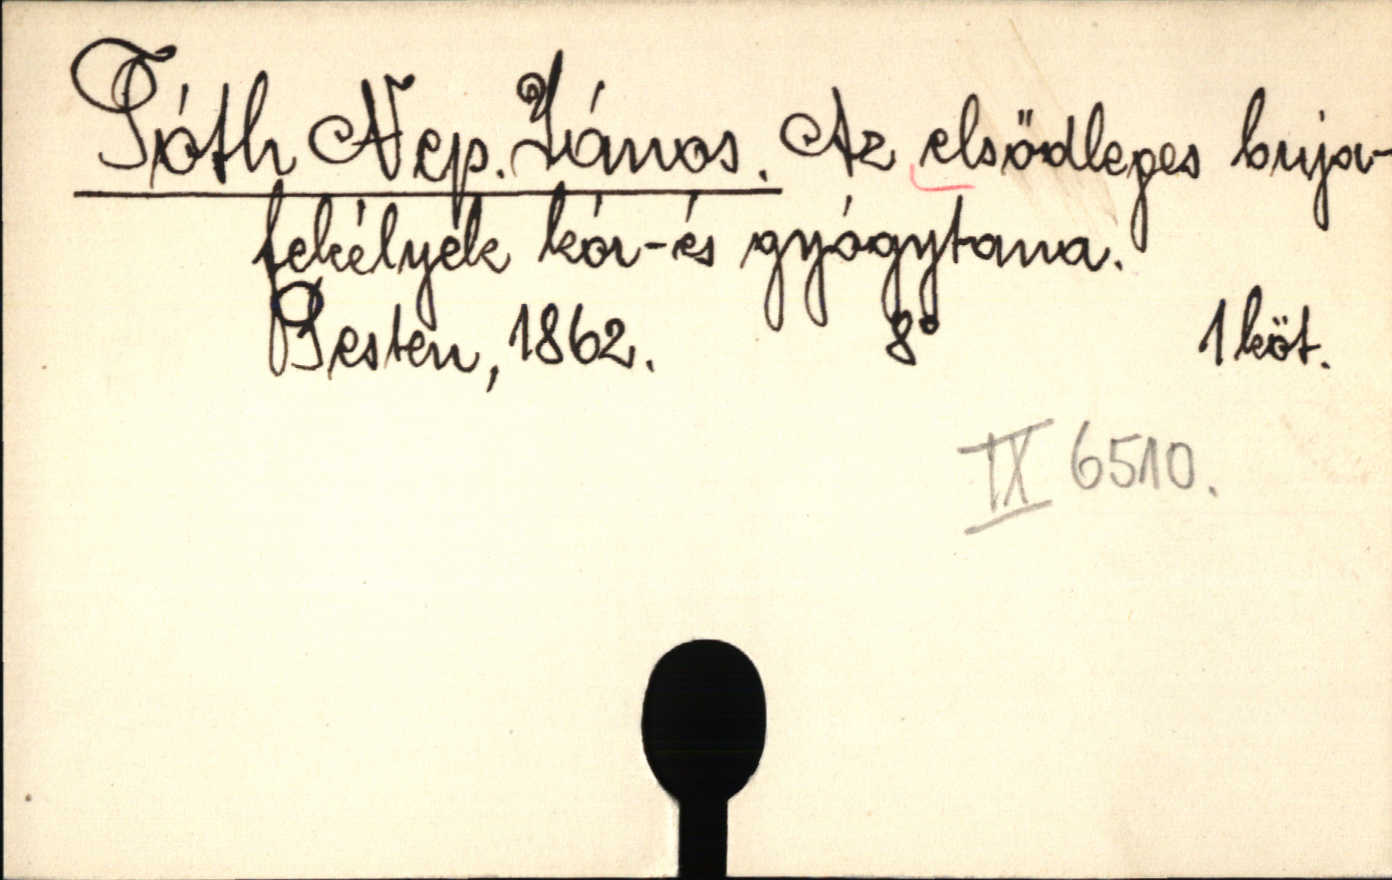 Tóth Nep. János. Az elsödleges buja-
fekélyek kór-és gyógytana.
Pesten, 1862. 8° 1 köt.
IX 6510.